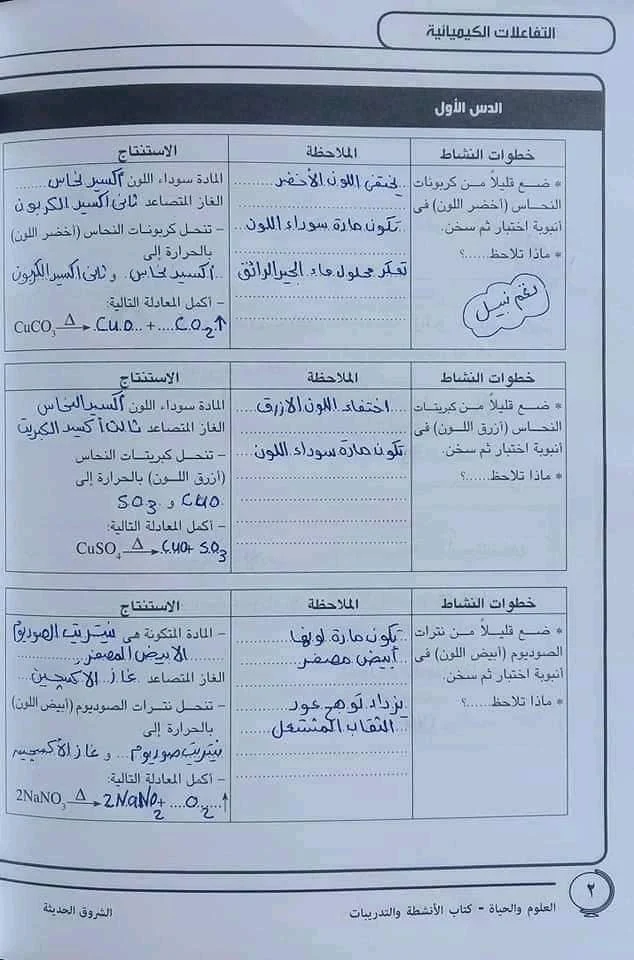 التفاعلات الكيميائية
الدس الأول
خطوات النشاط
* ضع قليلاً من كربونات
النحاس (أخضر اللون) فى
أنبوبة اختبار ثم سخن.
* ماذا تلاحظ......؟
نغم نبيل
الملاحظة
يختفى اللون الأخضر
تكون مادة سوداء اللون
تعكر محلول ماء الجير الرائق
الاستنتاج
المادة سوداء اللون أكسيد نحاس
الغاز المتصاعد ثانى أكسيد الكربون
- تنحل كربونات النحاس (أخضر اللون)
بالحرارة إلى
أكسيد نحاس و ثانى أكسيد الكربون
- أكمل المعادلة التالية:
CuCO₃ —Δ→ CuO + CO₂↑
خطوات النشاط
* ضع قليلاً من كبريتات
النحاس (أزرق اللون) فى
أنبوبة اختبار ثم سخن.
* ماذا تلاحظ......؟
الملاحظة
اختفاء اللون الازرق
تكون مادة سوداء اللون
الاستنتاج
المادة سوداء اللون أكسيد النحاس
الغاز المتصاعد ثالث أكسيد الكبريت
- تنحل كبريتات النحاس
(أزرق اللون) بالحرارة إلى
CuO و SO₃
- أكمل المعادلة التالية:
CuSO₄ —Δ→ CuO + SO₃
خطوات النشاط
* ضع قليلاً من نترات
الصوديوم (أبيض اللون) فى
أنبوبة اختبار ثم سخن.
* ماذا تلاحظ......؟
الملاحظة
تكون مادة لونها
أبيض مصفر
يزداد توهج عود
الثقاب المشتعل
الاستنتاج
- المادة المتكونة هى نيتريت الصوديوم
الابيض المصفر
الغاز المتصاعد غاز الاكسجين
- تنحل نترات الصوديوم (أبيض اللون)
بالحرارة إلى
نيتريت صوديوم و غاز الأكسجين
- أكمل المعادلة التالية:
2NaNO₃ —Δ→ 2NaNO₂ + O₂↑
٢
العلوم والحياة - كتاب الأنشطة والتدريبات
الشروق الحديثة